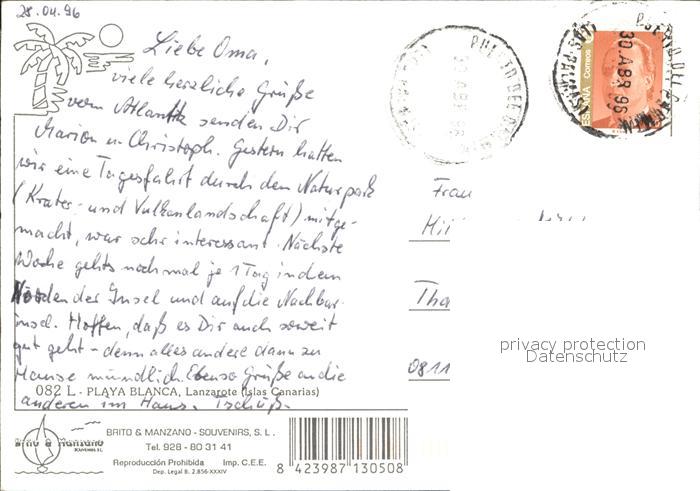 28.04.96
Liebe Oma,
viele herzliche Grüße
vom Atlantik senden Dir
Marion u. Christoph. Gestern hatten
wir eine Tagesfahrt durch den Naturpark
(Krater- und Vulkanlandschaft) mitge-
macht, war sehr interessant. Nächste
Woche gehts nochmal je 1 Tag in den
Norden der Insel und auf die Nachbar-
insel. Hoffen, daß es Dir auch soweit
gut geht - denn alles andere dann zu
Hause mündlich. Ebenso Grüße an die
anderen im Haus. Tschüß.
082 L - PLAYA BLANCA, Lanzarote (Islas Canarias)
Brito & Manzano
SOUVENIRS S.L.
BRITO & MANZANO - SOUVENIRS, S. L.
Tel. 928 - 80 31 41
Reproducción Prohibida Imp. C.E.E.
Dep. Legal B. 2.856-XXXIV
8 423987 130508
PUERTO DEL
30 ABR 96
ESPAÑA Correos
PUERTO DEL CARMEN
30 ABR 96
LAS PALMAS
Frau
Tha
0811
privacy protection
Datenschutz